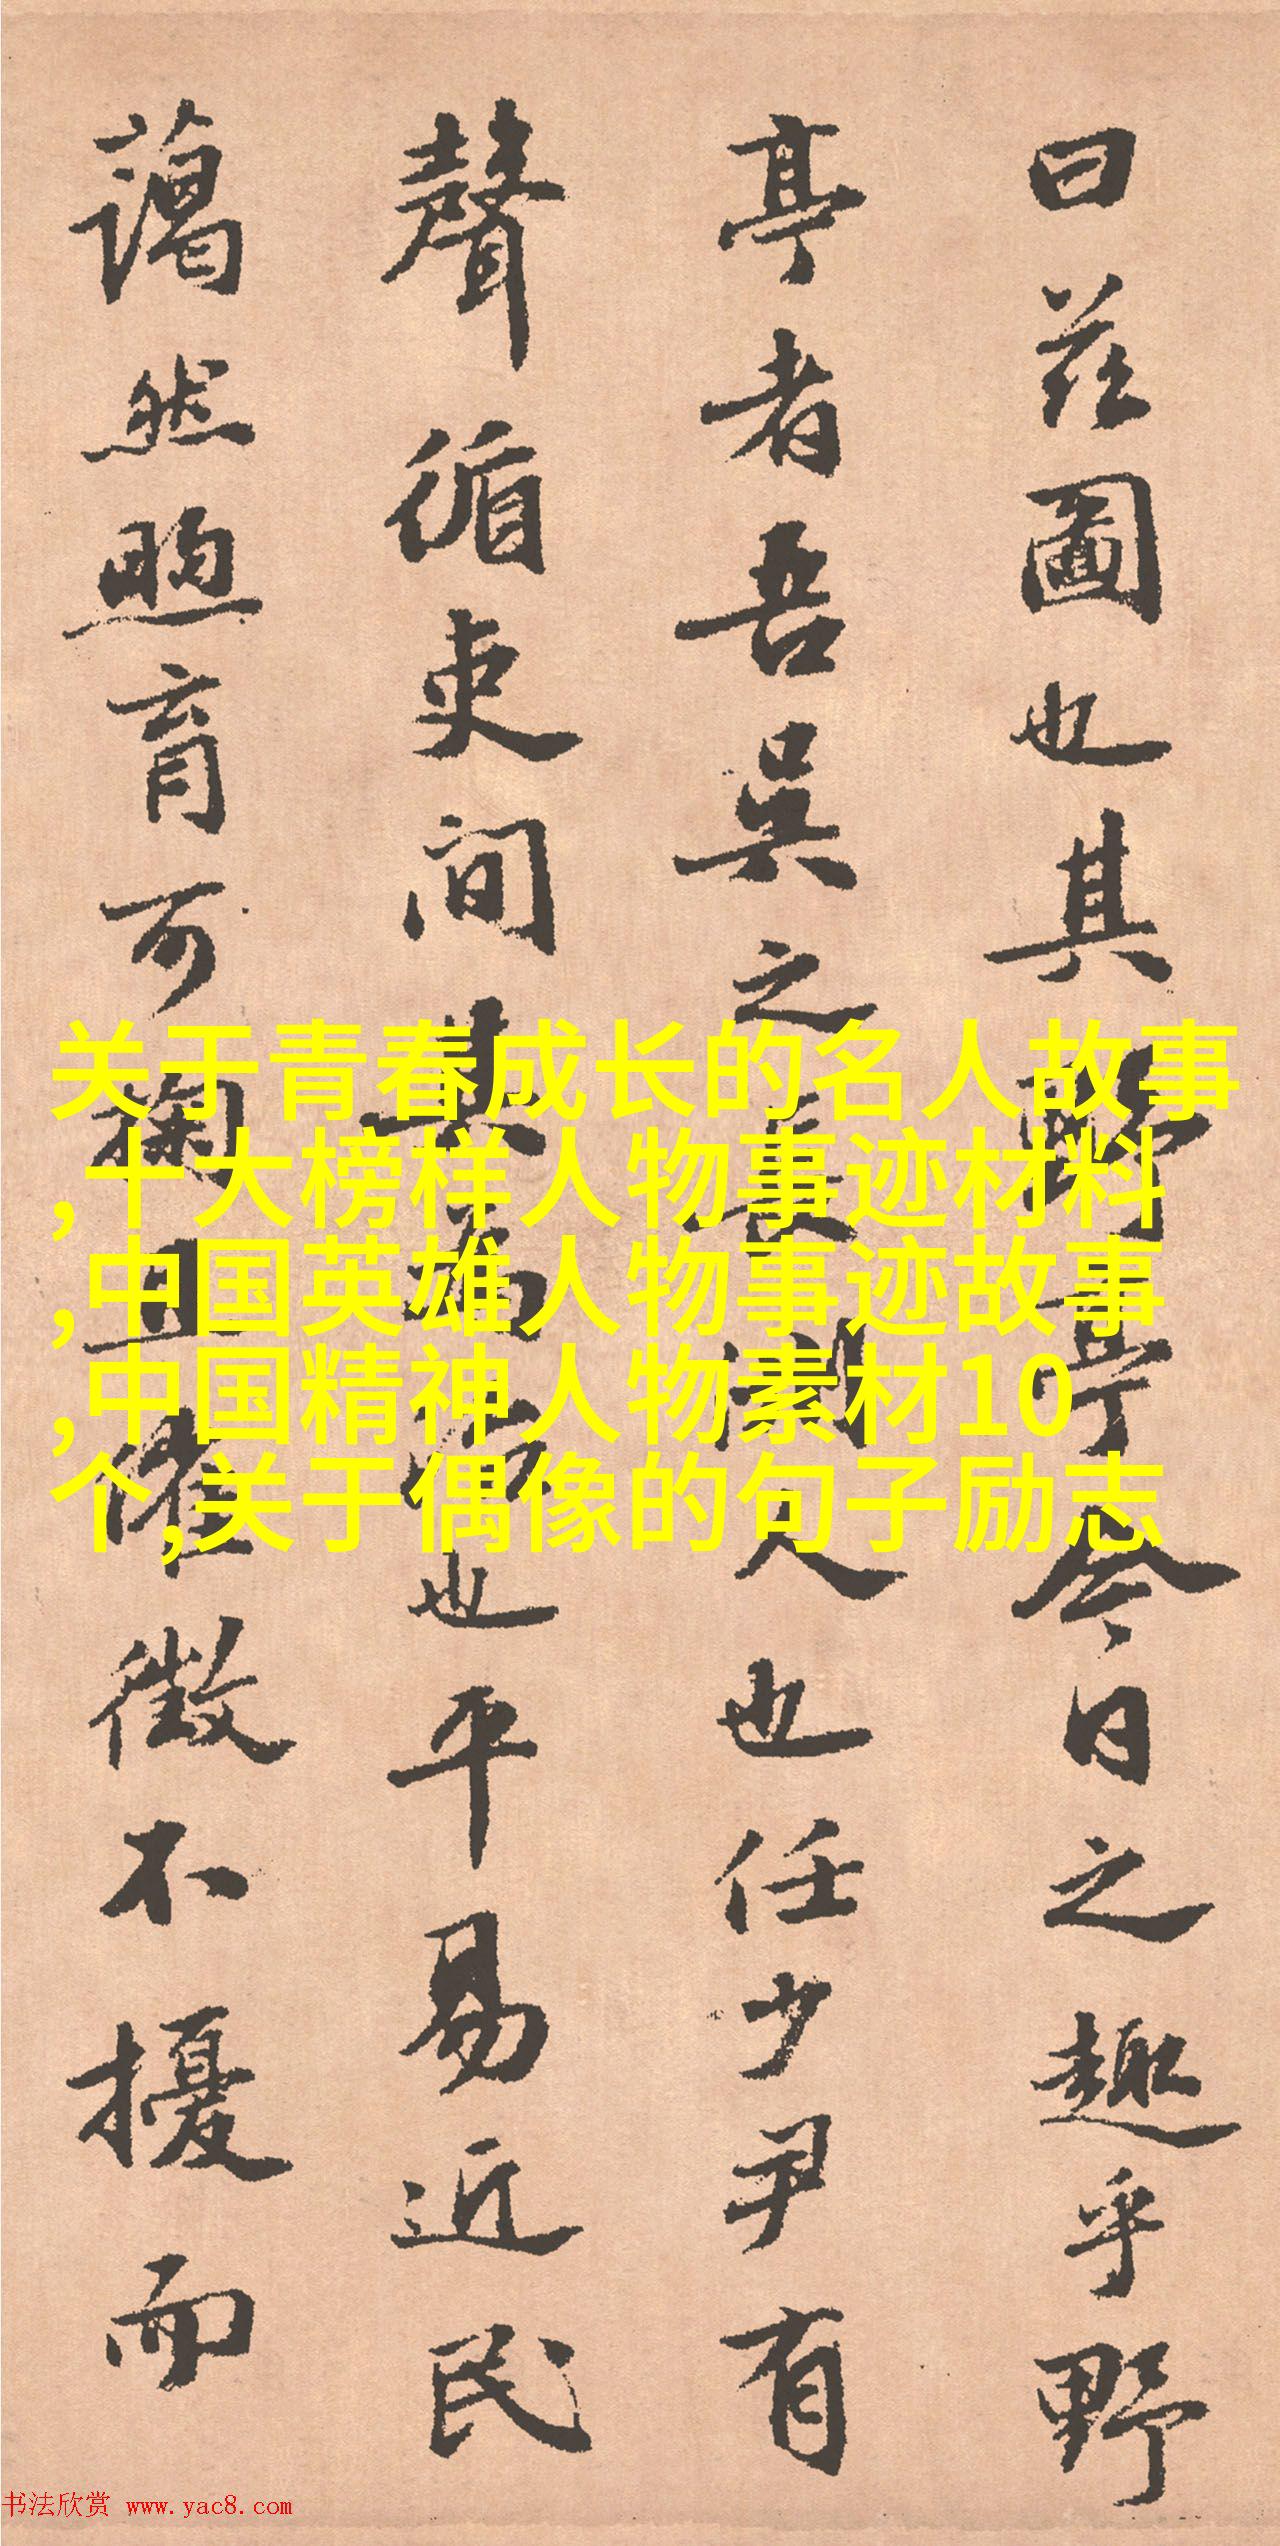 曰茲圖也其野亭今日之趣乎野
亭者吾吳之良測人也任少尹有
聲循吏間其為而也平易近民
藹然煦育可掬且僅徵不擾而
关于青春成长的名人故事
,十大榜样人物事迹材料
,中国英雄人物事迹故事
,中国精神人物素材10
个,关于偶像的句子励志
书法欣赏 www.yac8.com